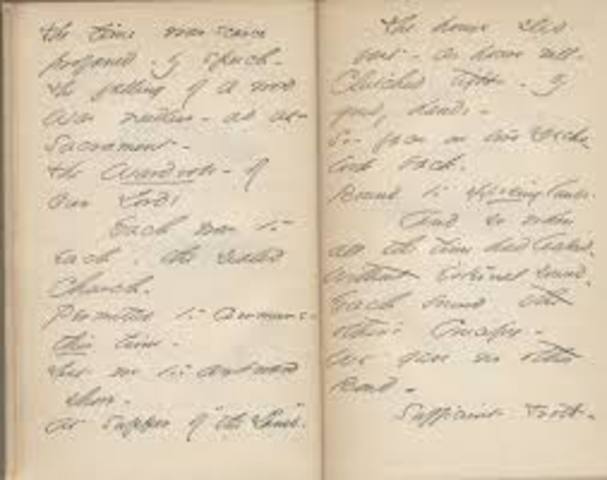 The time was scarce
profaned - by speech -
The falling of a word
Was needless - as at
Sacrament -
The Wardrobe - of
Our Lord!
Each was to
each - the sealed
Church -
Permitted to commune -
this time -
Lest we too awkward
show -
At "Supper of the Lamb".
The hours slid
fast - as hours will -
Clutched tight - by
hands -
So - faces on two Decks
look back -
Bound to opposing lands.
And so when
all the time had leaked,
without external sound,
Each bound the
other's Crucifix -
We gave no other
Bond -
Sufficient troth -